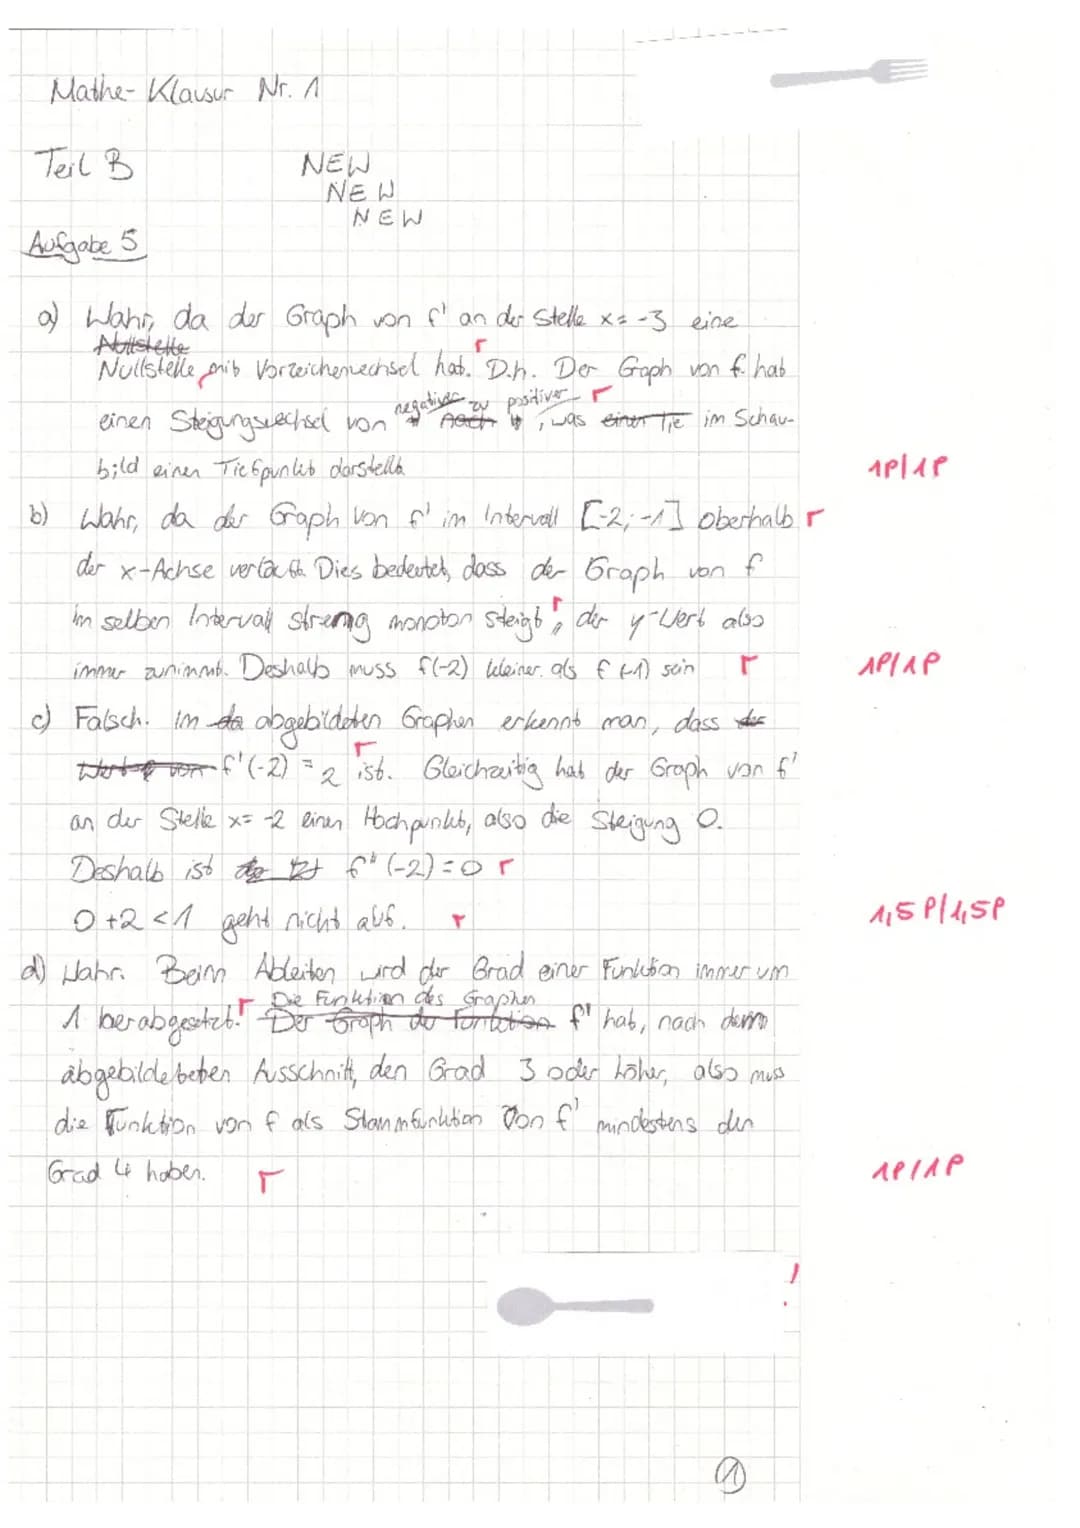 Mathe-Klausur Nr. 1
Teil B
NEW
NEW
NEW
Aufgabe 5
a) Wahr, da der Graph von f' an der Stelle x = -3 eine
Nullstelle
Nullstelle mit Vorzeichenwechsel hat. D.h. Der Graph von f hat
negativer zu positiver
einen Steigungswechsel von nach , was einen Tie im Schau-
bild einen Tiefpunkt darstellt.
1P/1P
b) Wahr, da der Graph von f' im Intervall [-2; -1] oberhalb
der x-Achse verläuft. Dies bedeutet, dass der Graph von f
im selben Intervall streng monoton steigt, der y-Wert also
immer zunimmt. Deshalb muss f(-2) kleiner als f(-1) sein
1P/1P
c) Falsch. Im da abgebildeten Graphen erkennt man, dass der
Wert von f'(-2) = 2 ist. Gleichzeitig hat der Graph von f'
an der Stelle x = -2 einen Hochpunkt, also die Steigung 0.
Deshalb ist f''(-2) = 0
0 + 2 < 1 geht nicht auf.
1,5P/1,5P
d) Wahr. Beim Ableiten wird der Grad einer Funktion immer um
Die Funktion des Graphen
1 herabgesetzt. Der Graph der Funktion f' hat, nach dem
abgebildeteten Ausschnitt, den Grad 3 oder höher, also muss
die Funktion von f als Stammfunktion von f' mindestens den
Grad 4 haben.
1P/1P
!
1